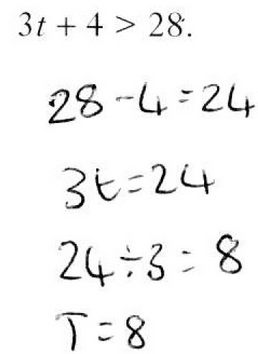 3t + 4 > 28.
28 - 4 = 24
3t = 24
24 ÷ 3 = 8
T = 8